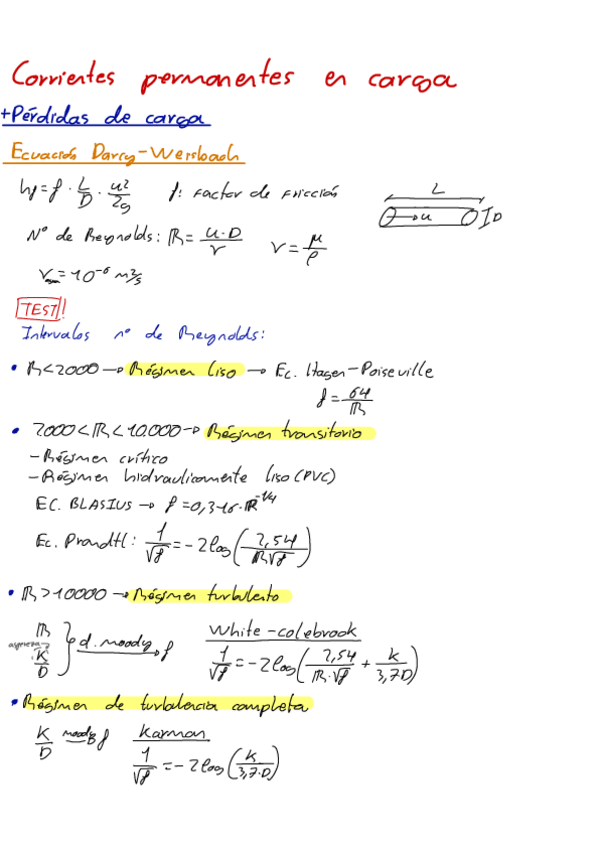 Corrientes permanentes en carga
+Pérdidas de carga
Ecuación Darcy-Weisbach
hf = f · L/D · u²/2g   f: Factor de Fricción   L
u   D
Nº de Reynolds: R = u·D/ν   ν = μ/ρ
= 10⁻⁶ m²/s
TEST!!
Intervalos nº de Reynolds:
• R<2000 → Régimen liso → Ec. Hagen-Poiseville
f = 64/R
• 2000<R<10.000 → Régimen transitorio
- Régimen crítico
- Régimen hidraulicamente liso (PVC)
EC. BLASIUS → f = 0,316·R^-1/4
Ec. Prandtl: 1/√f = -2log(2,54/R√f)
• R>10000 → Régimen turbulento
R   white-colebrook
aspereza K/D } d. moody → f   1/√f = -2log(2,54/R·√f + K/3,7D)
• Régimen de turbulencia completa
K/D moody → f   Karman
1/√f = -2log(K/3,7·D)